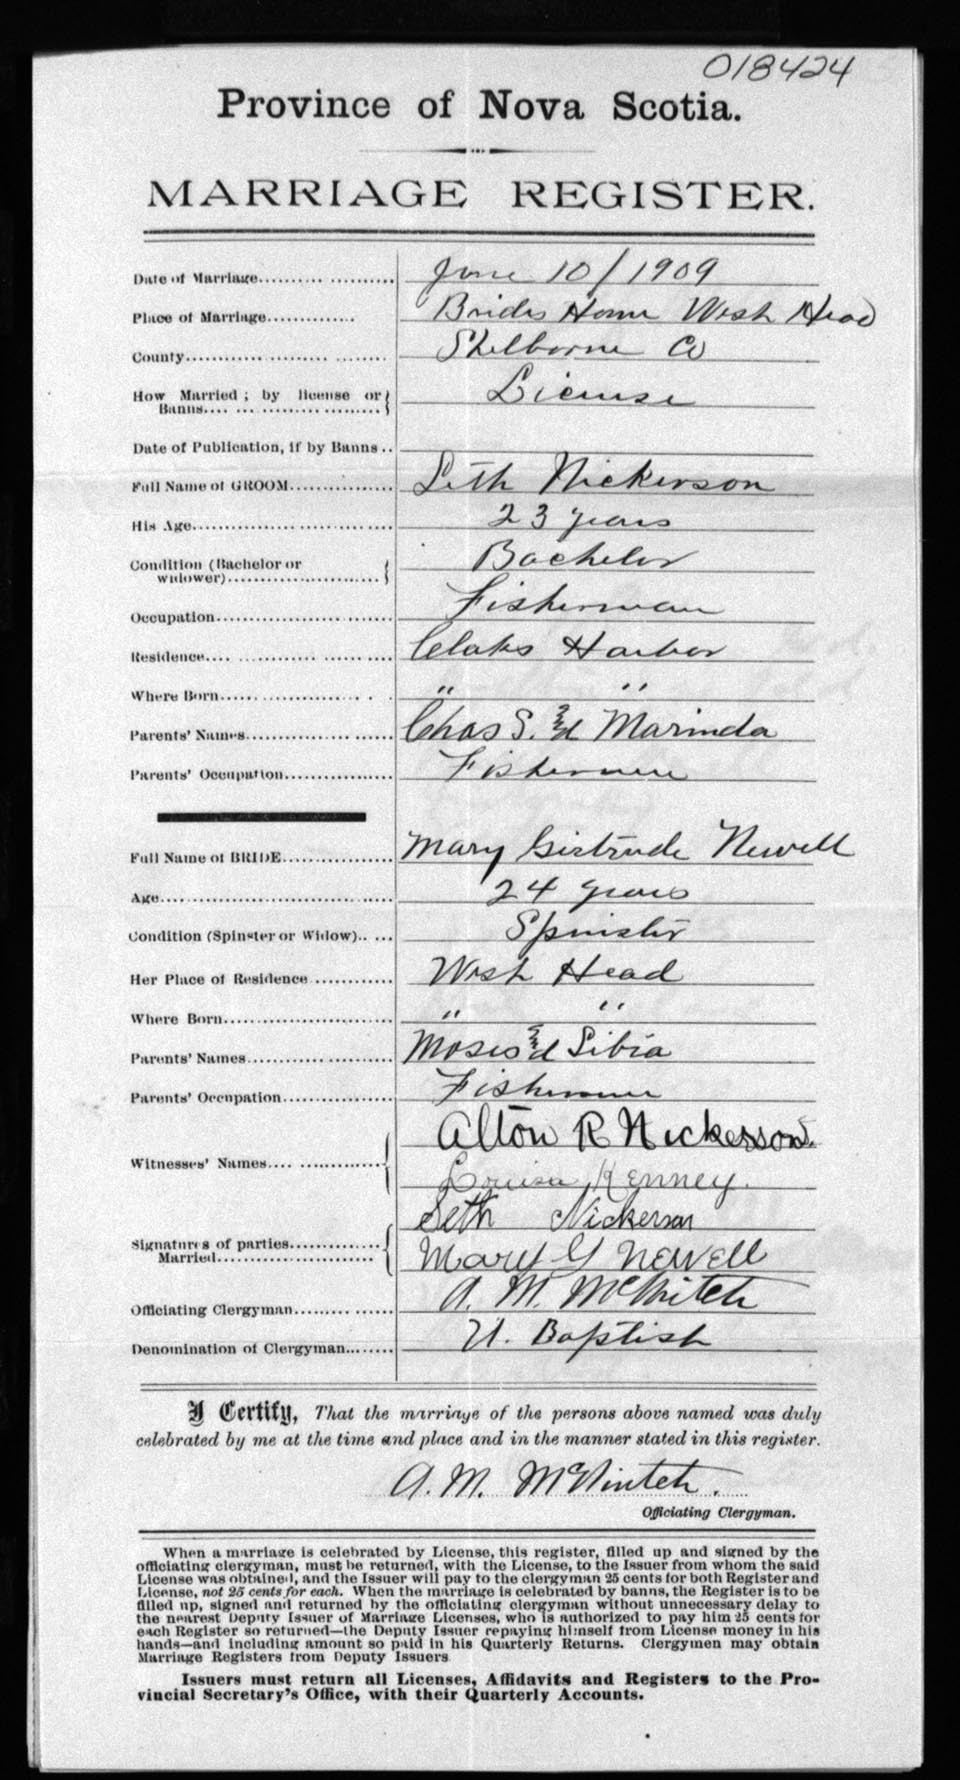 018424
Province of Nova Scotia.
MARRIAGE REGISTER.
Date of Marriage.................... June 10/1909
Place of Marriage............. Brides Home West Head
County............................ Shelborne Co
How Married ; by license or License
Banns....................
Date of Publication, if by Banns..
Full Name of GROOM................ Seth Nickerson
His Age............................ 23 years
Condition (Bachelor or Bachelor
widower)......................
Occupation........................ Fisherman
Residence........................ Claks Harbor
Where Born...................... " "
Parents' Names.................... Chas S. and Marinda
Parents' Occupation................ Fisherman
Full Name of BRIDE................ Mary Girtrude Newell
Age................................ 24 years
Condition (Spinster or Widow)..... Spinster
Her Place of Residence............ West Head
Where Born........................ " "
Parents' Names.................... Moses and Sibia
Parents' Occupation................ Fisherman
Alton R Nickerson.
Witnesses' Names.................. Louisa Kenney.
Seth Nickerson
Signatures of parties..............
Married...................... Mary G Newell
Officiating Clergyman.............. A. M. McNintch
Denomination of Clergyman....... U. Baptist
I Certify, That the marriage of the persons above named was duly
celebrated by me at the time and place and in the manner stated in this register.
A. M. McNintch.
Officiating Clergyman.
When a marriage is celebrated by License, this register, filled up and signed by the
officiating clergyman, must be returned, with the License, to the Issuer from whom the said
License was obtained, and the Issuer will pay to the clergyman 25 cents for both Register and
License, not 25 cents for each. When the marriage is celebrated by banns, the Register is to be
filled up, signed and returned by the officiating clergyman without unnecessary delay to
the nearest Deputy Issuer of Marriage Licenses, who is authorized to pay him 25 cents for
each Register so returned—the Deputy Issuer repaying himself from License money in his
hands—and including amount so paid in his Quarterly Returns. Clergymen may obtain
Marriage Registers from Deputy Issuers
Issuers must return all Licenses, Affidavits and Registers to the Pro-
vincial Secretary's Office, with their Quarterly Accounts.